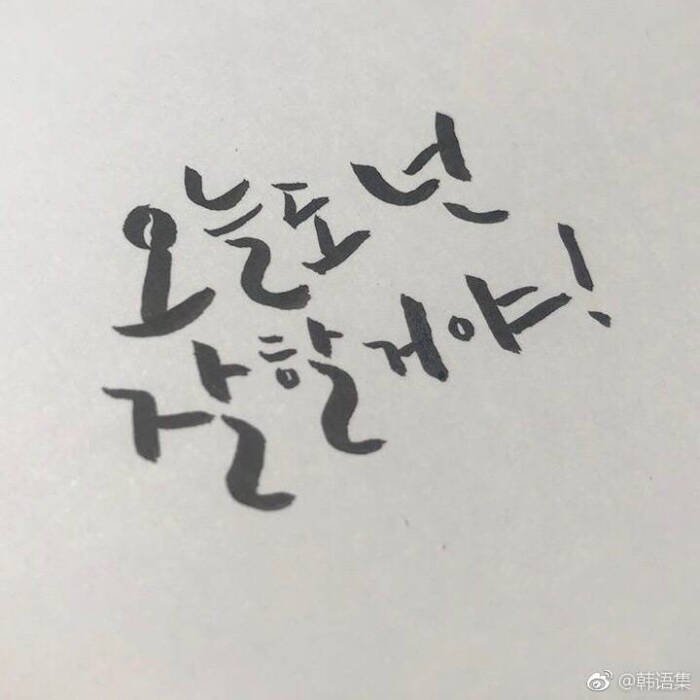 오늘도 넌
잘할거야!
@韩语集